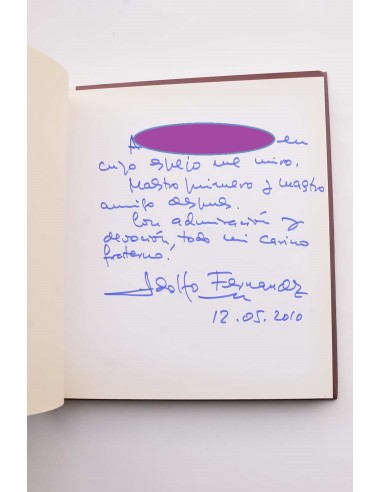 A en
cuyo espejo me miro.
Maestro primero y maestro
amigo después.
Con admiración y
devoción, todo mi cariño
fraterno.
Adolfo Fernandez
12.05.2010